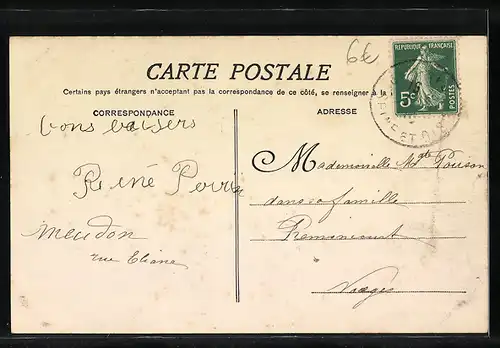 6€
RÉPUBLIQUE FRANÇAISE
5c
POSTES
CARTE POSTALE
Certains pays étrangers n'acceptant pas la correspondance de ce côté, se renseigner à la
CORRESPONDANCE
ADRESSE
bons baisers
René
Meudon
rue
Mademoiselle
dans sa famille
Remoncourt
Vosges